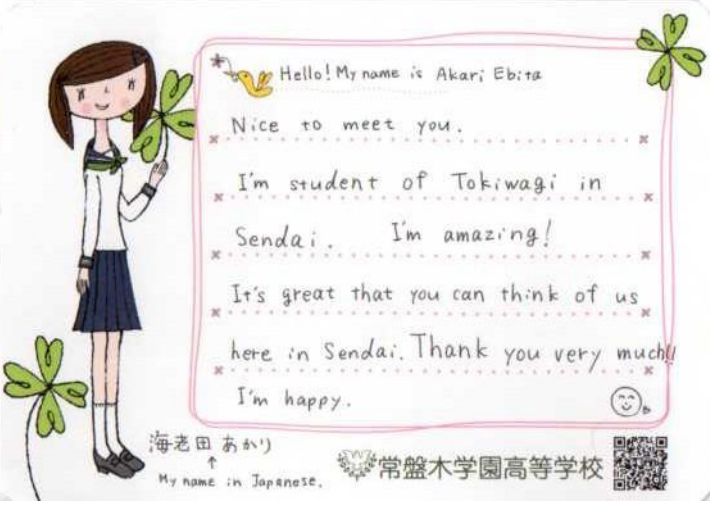 Hello! My name is Akari Ebita
Nice to meet you.
I'm student of Tokiwagi in
Sendai. I'm amazing!
It's great that you can think of us
here in Sendai. Thank you very much!!
I'm happy.
海老田 あかり
↑
My name in Japanese.
常盤木学園高等学校